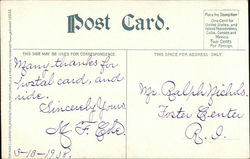 Post Card.
THIS SIDE MAY BE USED FOR CORRESPONDENCE
THIS SPACE FOR ADDRESS ONLY.
Place the Stamp Here
One Cent for
United States
Cuba, Canada and
Mexico.
Two Cents
For Foreign.
Many thanks for
Postal card, and
ride.
Sincerely Yours
M. F.
Mr. Ralph Nichols.
Foster Center
R. I.